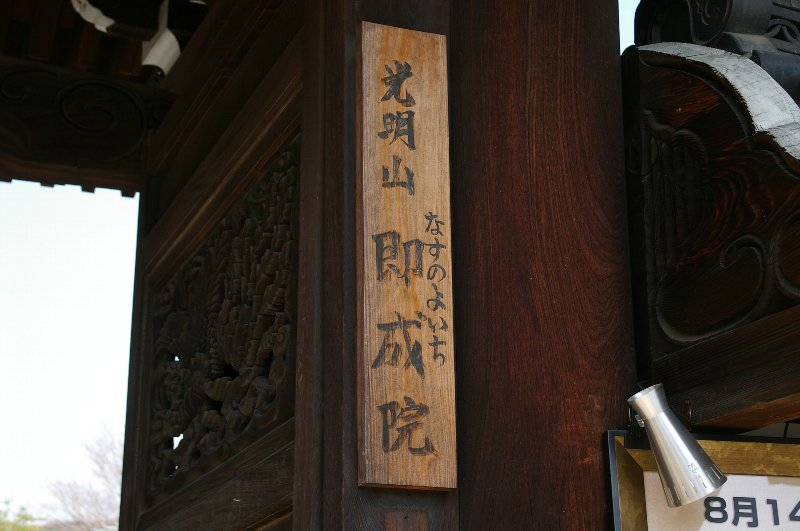 光明山
即成院
なすのよいち
8月14